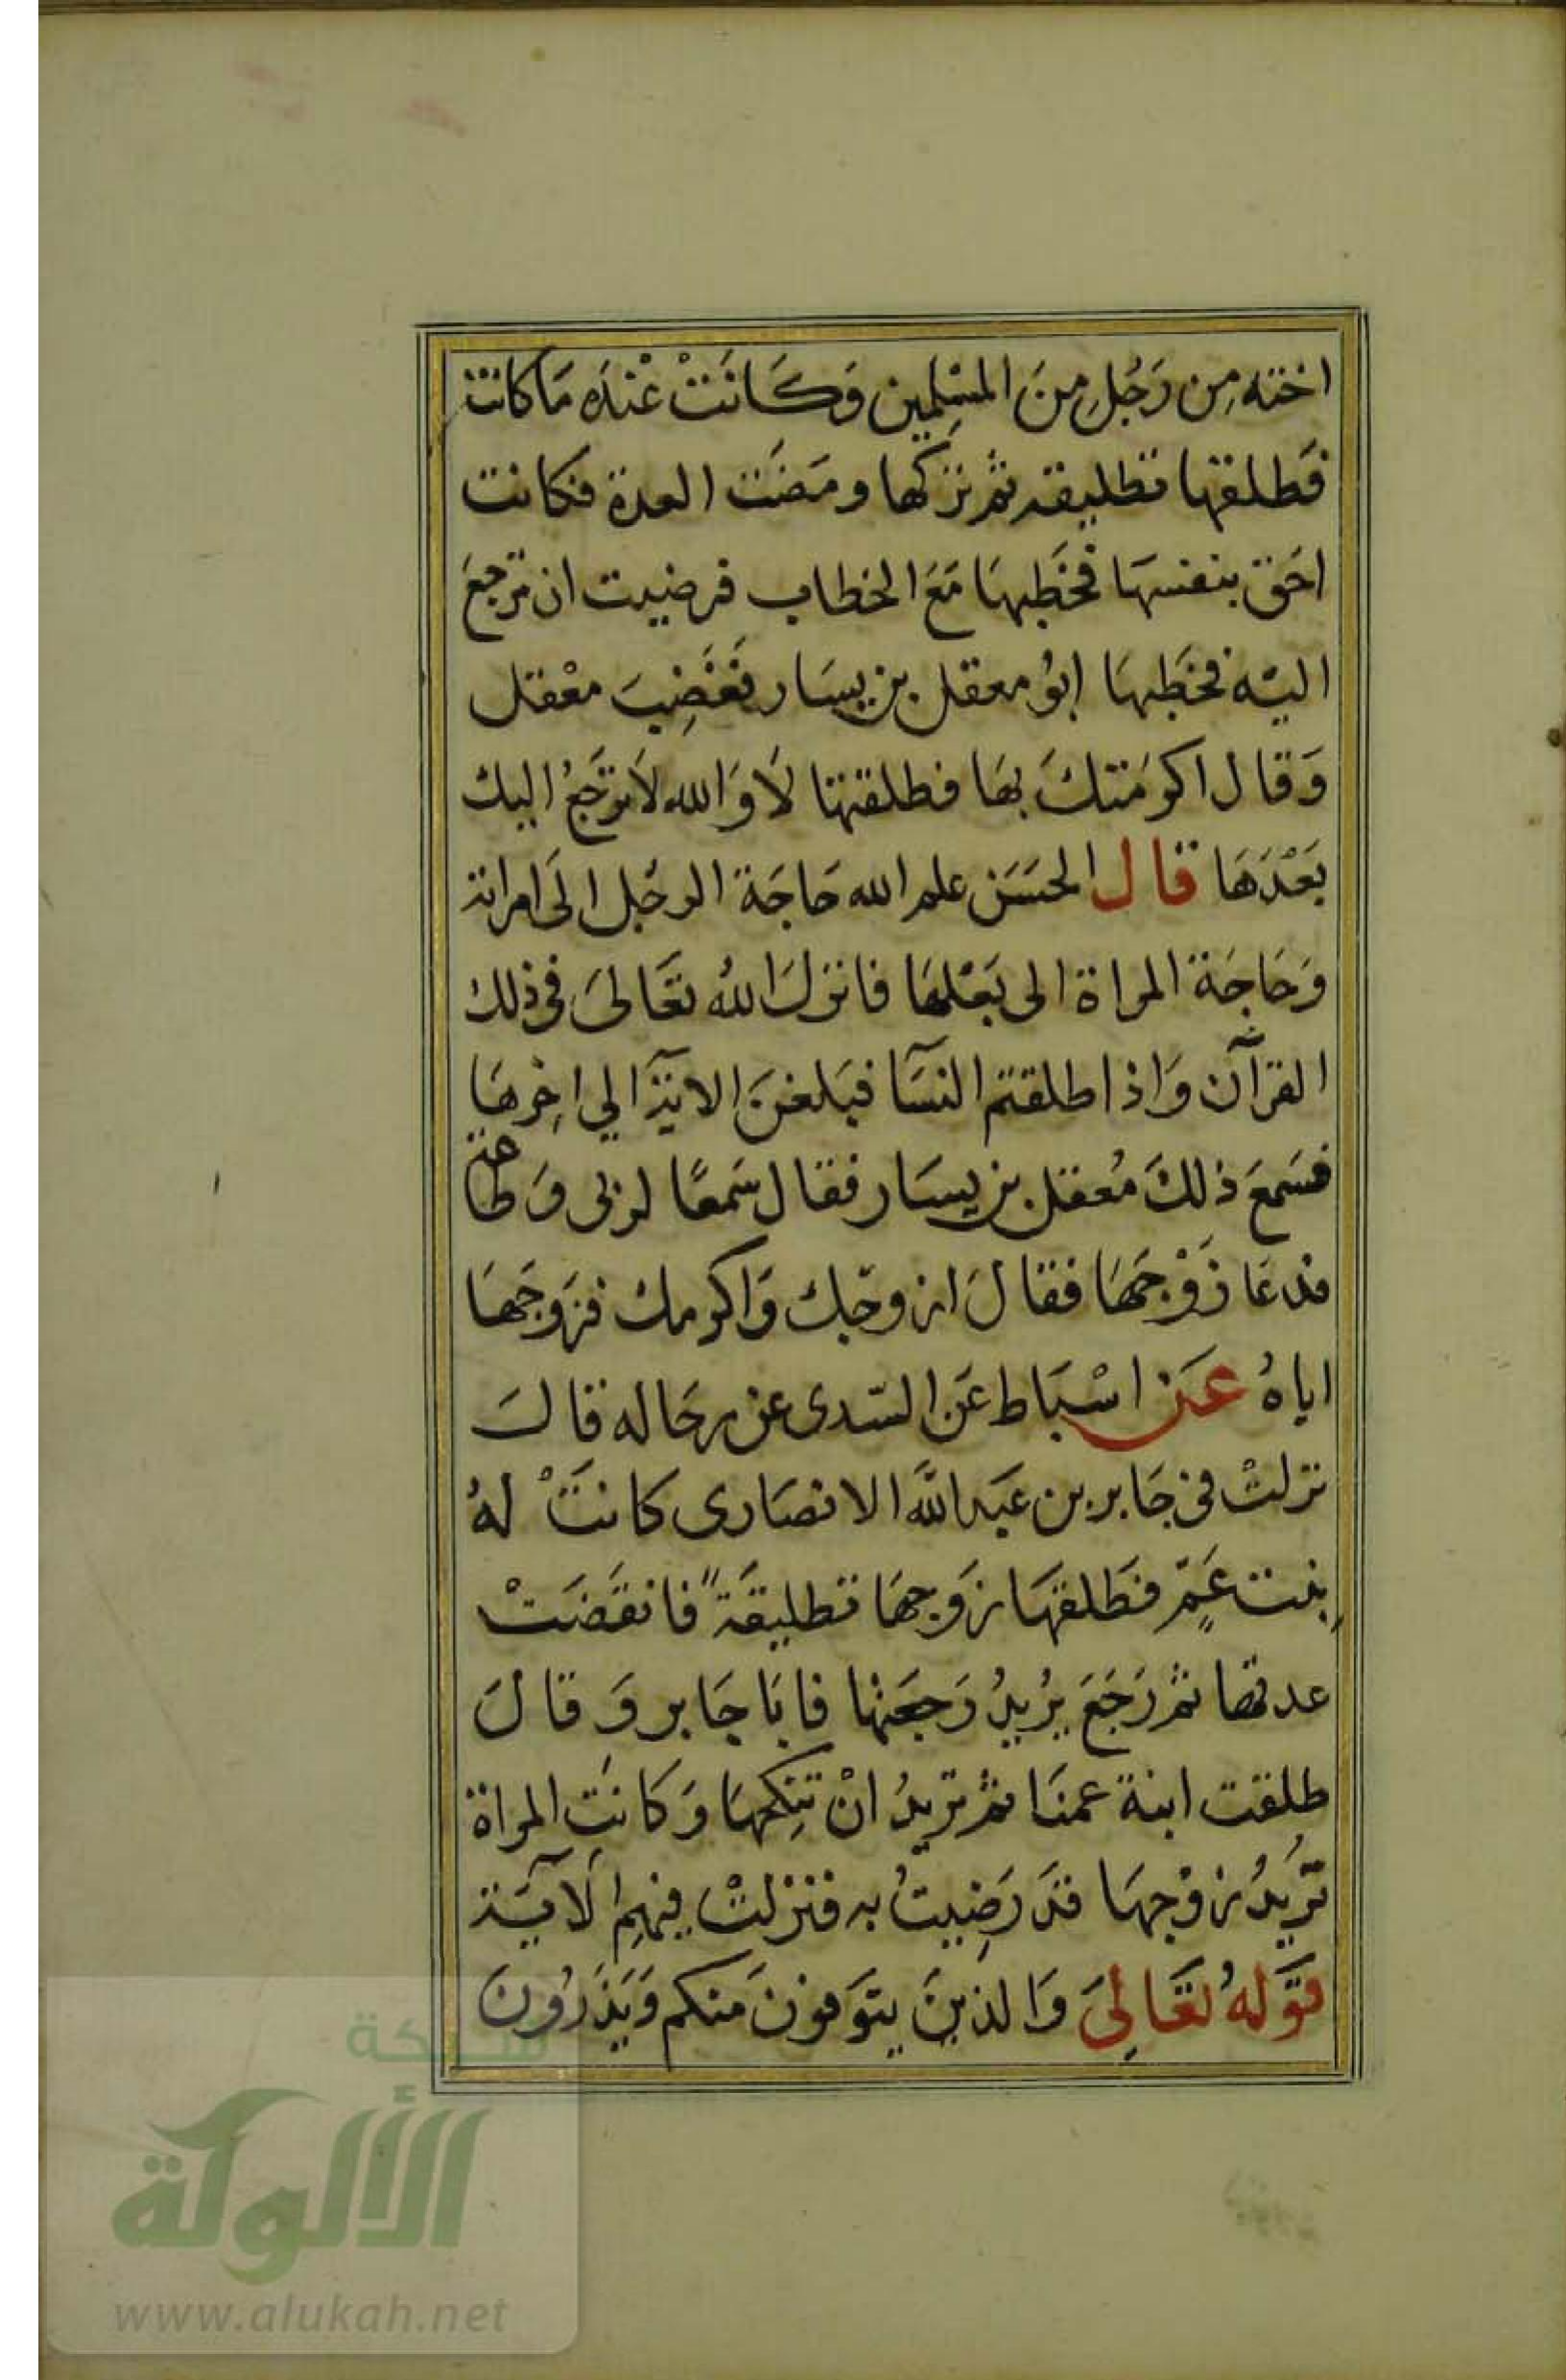 اخته مِن رَجُلِ مِنَ المسْلِمين وَكَانَتْ عْنَدَه مَا كانت
فَطلقها تطليقه ثم تركها ومَضَت العدة فكانت
احَق بنفسهَا فخَطبهَا مَعَ الخطاب فرضيت ان ترجعَ
اليْه فخَطبهَا ابُو معقل بن يسَار فَغَضِبَ معْقل
وَقال اكرمَتكَ بهَا فطلقتها لَا وَالله لَا ترجَعُ اليك
بَعْدَهَا قال الحسَن علم الله حَاجَة الرجُل الَى امراته
وَحَاجَة المراة الى بَعْلهَا فانزلَ اللهُ تعَالىَ فى ذلك
القرآن وَاذا طلقتم النسَآ فبَلغنَ الاية الي اخِرهَا
فسَمعَ ذلكَ مُعقل بن يسَار فقال سَمعًا لربى وَطاعة
فدعَا زَوْجَهَا فقالَ ازوجَك وَاكرمك فزوَجَهَا
اياهُ عَن اسْبَاط عَن السّدى عن رجَاله قالَ
نزلتْ فى جَابر بن عَبد اللَّه الانصَارى كانتَْ لهُ
بِنت عَمٍّ فطَلقهَا زَوجهَا تطليقَةً فانقَضَتْ
عدتها ثم رَجَعَ يُريدُ رَجعَتها فابَا جَابر وَقالَ
طلقت ابنة عمنَا ثم تريدُ انْ تنِكحهَا وَكَانَتِ المراة
تُريدُ زوْجهَا قدَ رَضِيتُ به فنزلتْ فيهِم الَآيَة
قوَلهُ تعَالِىَ وَالذينَ يتوَفونَ مَنكم وَيَذَرُونَ
شبكة
الألوكة
www.alukah.net